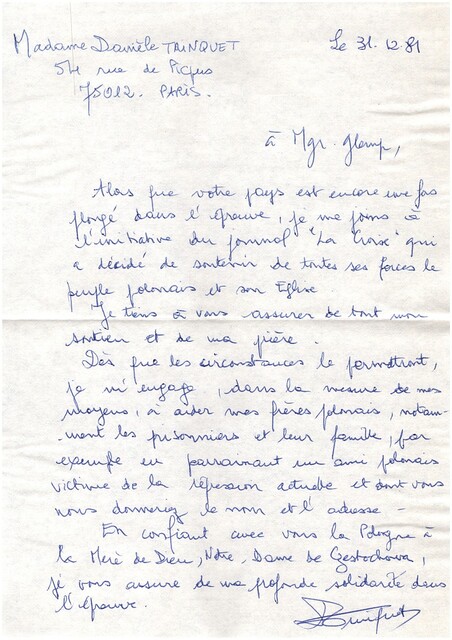 Madame Danièle TRINQUET
Le 31.12.81
54 rue de Picpus
75012. PARIS.
à Mgr. Glemp,
Alors que votre pays est encore une fois
plongé dans l'épreuve, je me joins à
l'initiative du journal "La Croix" qui
a décidé de soutenir de toutes ses forces le
peuple polonais et son Eglise.
Je tiens à vous assurer de tout mon
soutien et de ma prière.
Dès que les circonstances le permettront,
je m'engage, dans la mesure de mes
moyens, à aider mes frères polonais, notam-
-ment les prisonniers et leur famille, par
exemple en parrainant un ami polonais
victime de la répression actuelle et dont vous
nous donneriez le nom et l'adresse -
En confiant avec vous la Pologne à
la Mère de Dieu, Notre-Dame de Czestochowa,
je vous assure de ma profonde solidarité dans
l'épreuve.